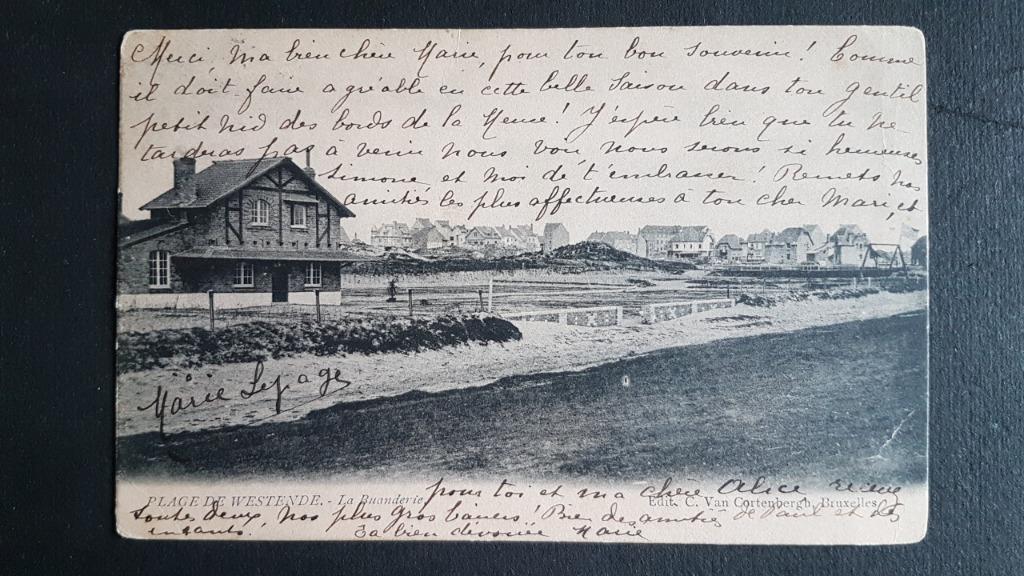 Merci, ma bien chère Marie, pour ton bon souvenir! Comme
il doit faire agréable en cette belle saison dans ton gentil
petit nid des bords de la Meuse! J'espère bien que tu ne
tarderas pas à venir nous voir nous serons si heureuses
Simone et moi de t'embrasser! Remets nos
amitiés les plus affectueuses à ton cher Mari, et
Marie Lepage
PLAGE DE WESTENDE. - La Buanderie
Edit. C. Van Cortenbergh, Bruxelles
pour toi et ma chère Alice recevez
toutes deux, nos plus gros baisers! Bien des amitiés de Paul et des
enfants. Ta bien dévouée Marie